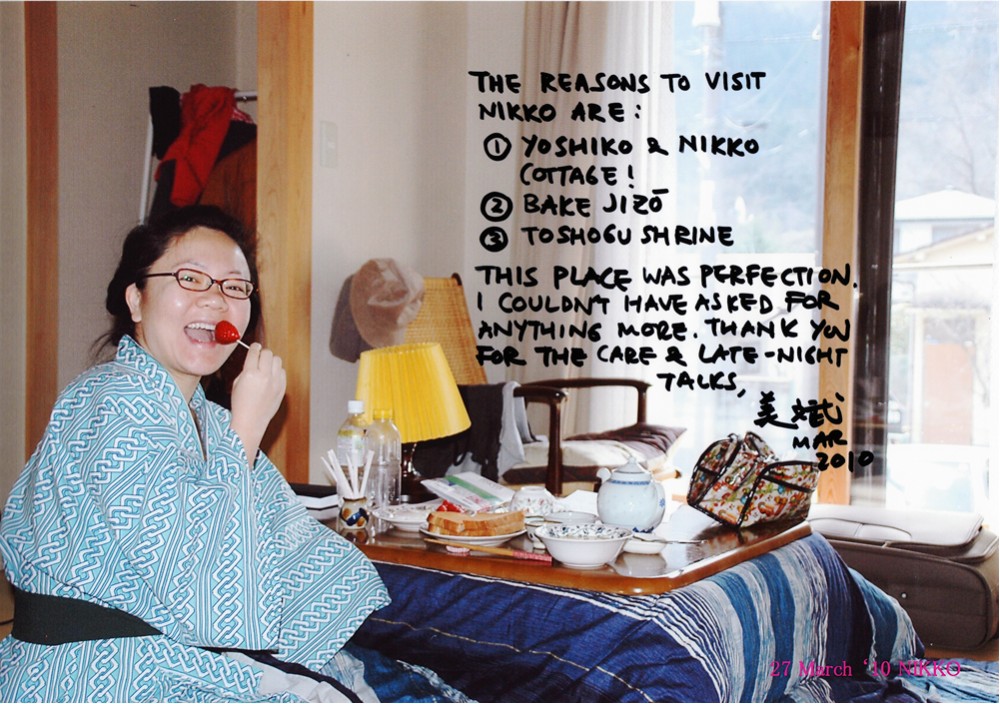 THE REASONS TO VISIT
NIKKO ARE:
① YOSHIKO & NIKKO
COTTAGE!
② BAKE JIZŌ
③ TOSHOGU SHRINE
THIS PLACE WAS PERFECTION.
I COULDN'T HAVE ASKED FOR
ANYTHING MORE. THANK YOU
FOR THE CARE & LATE-NIGHT
TALKS,
美
MAR
2010
27 March '10 NIKKO